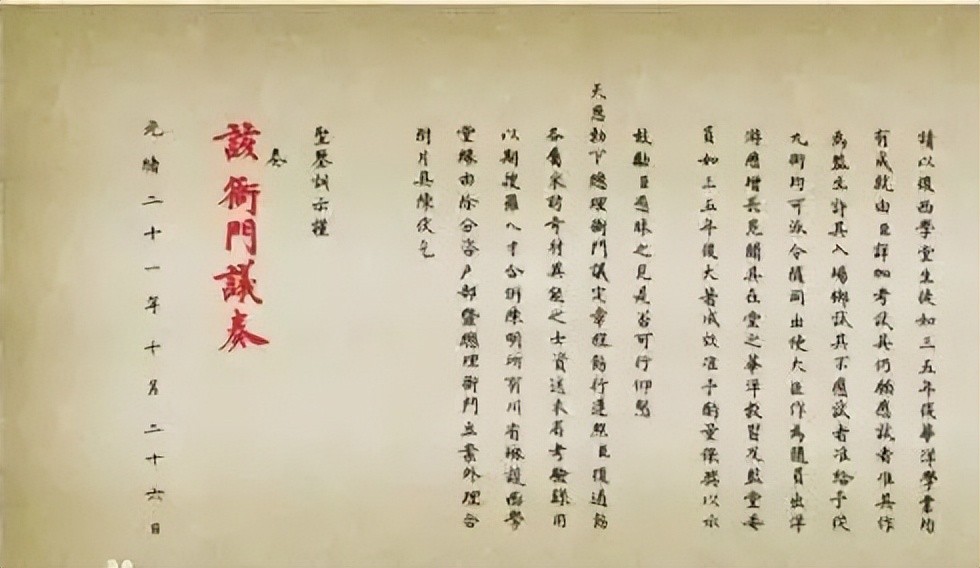 請以後西學堂生徒如三五年後華洋學業均
有成就由臣詳加考試其仍願應試者准其作
為監生許其入場鄉試其不應試者准給予從
九銜均可派令隨同出使大臣作為隨員出洋
游歷增長見聞其在堂之華洋教習及監堂委
員如三五年後大著成效准予酌量保獎以示
鼓勵臣愚昧之見是否可行仰懇
天恩勅下總理衙門議定章程飭行遵照臣復通飭
各屬采訪奇材異能之士資送來省考驗錄用
以期搜羅人才合併陳明所有川省設西學
堂緣由除分咨戶部暨總理衙門立案外理合
附片具陳伏乞
聖鑒訓示謹
奏
該衙門議奏
光緒二十一年十月二十六日